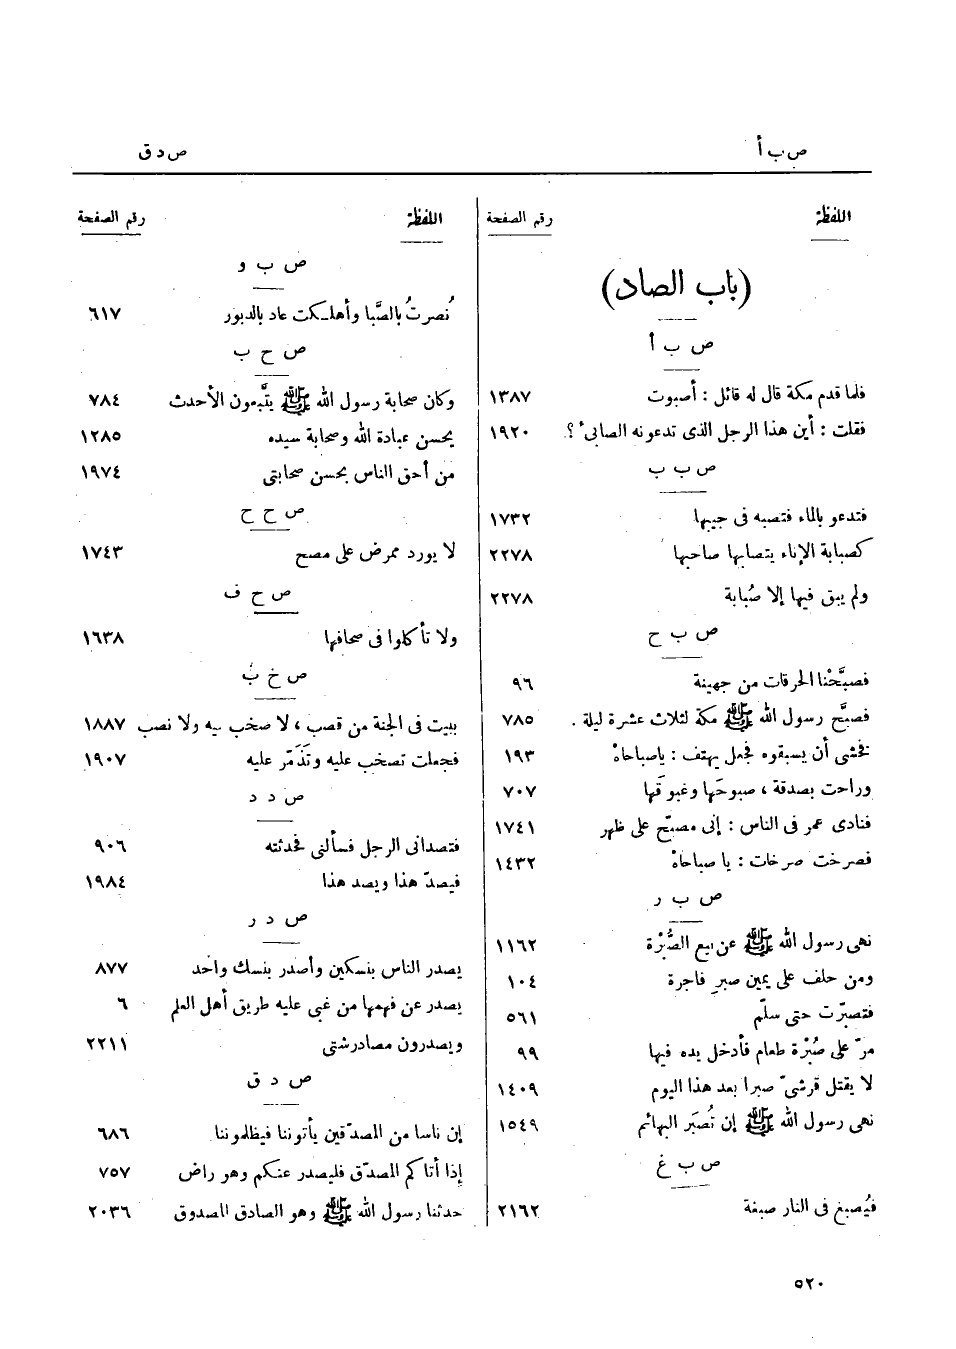 ص ب أ
ص د ق
اللفظة
رقم الصفحة
(باب الصاد)
ص ب أ
فلما قدم مكة قال له قائل : أصبوت ١٣٨٧
فقلت : أين هذا الرجل الذى تدعونه الصابىء ؟ ١٩٢٠
ص ب ب
فتدعو بالماء فتصبه فى جيبها ١٧٣٢
كصبابة الإناء يتصابها صاحبها ٢٢٧٨
ولم يبق فيها إلا صُبابة ٢٢٧٨
ص ب ح
فصبَّحْنا الحرقات من جهينة ٩٦
فصبَّح رسول الله ﷺ مكة لثلاث عشرة ليلة . ٧٨٥
فخشى أن يسبقوه فجعل يهتف : ياصباحاهْ ١٩٣
وراحت بصدقة ، صبوحَها وغبوقَها ٧٠٧
فنادى عمر فى الناس : إنى مصبّح على ظهر ١٧٤١
فصرخت صرخات : يا صباحاهْ ١٤٣٢
ص ب ر
نهى رسول الله ﷺ عن بيع الصُّبْرة ١١٦٢
ومن حلف على يمين صبرٍ فاجرة ١٠٤
فتصبّرت حتى سلّم ٥٦١
مرّ على صُبْرة طعام فأدخل يده فيها ٩٩
لا يقتل قرشىّ صبرا بعد هذا اليوم ١٤٠٩
نهى رسول الله ﷺ إن تُصبَر البهائم ١٥٤٩
ص ب غ
فيُصبغ فى النار صبغة ٢١٦٢
اللفظة
رقم الصفحة
ص ب و
نُصرتُ بالصَّبا وأهلكت عاد بالدبور ٦١٧
ص ح ب
وكان صحابة رسول الله ﷺ يتَّبعون الأحدث ٧٨٤
يحسن عبادة الله وصحابة سيده ١٢٨٥
من أحق الناس بحسن صحابتى ١٩٧٤
ص ح ح
لا يورد ممرض على مصح ١٧٤٣
ص ح ف
ولا تأكلوا فى صحافها ١٦٣٨
ص خ ب
ببيت فى الجنة من قصب ، لا صخب بيه ولا نصب ١٨٨٧
فجعلت تصخب عليه وتَذَمّر عليه ١٩٠٧
ص د د
فتصدانى الرجل فسألنى فحدثته ٩٠٦
فيصدّ هذا ويصد هذا ١٩٨٤
ص د ر
يصدر الناس بنسكين وأصدر بنسك واحد ٨٧٧
يصدر عن فهمها من غبى عليه طريق أهل العلم ٦
ويصدرون مصادرشتى ٢٢١١
ص د ق
إن ناسا من المصدّقين يأتوننا فيظلموننا ٦٨٦
إذا أتاكم المصدّق فليصدر عنكم وهو راض ٧٥٧
حدثنا رسول الله ﷺ وهو الصادق المصدوق ٢٠٣٦
٥٢٠